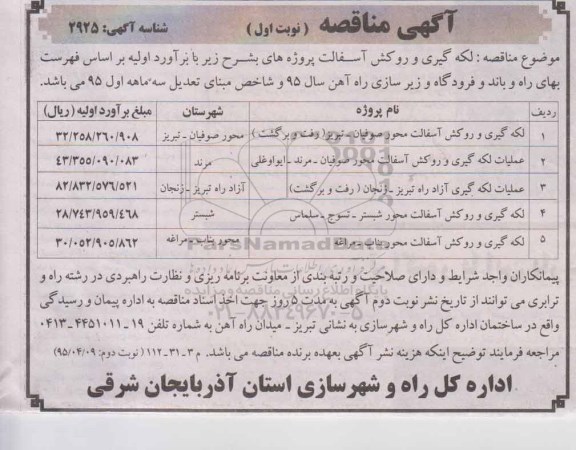 آگهی مناقصه ( نوبت اول ) شناسه آگهی: ۲۹۲۵
موضوع مناقصه : لکه گیری و روکش آسفالت پروژه های بشرح زیر با برآورد اولیه بر اساس فهرست
بهای راه و باند و فرودگاه و زیر سازی راه آهن سال ۹۵ و شاخص مبنای تعدیل سه ماهه اول ۹۵ می باشد.
ردیف نام پروژه شهرستان مبلغ برآورد اولیه ( ریال)
۱ لکه گیری و روکش آسفالت محور صوفیان ـ تبریز( رفت و برگشت ) محور صوفیان ـ تبریز ۳۲/۲۵۸/۲۶۰/۹۰۸
۲ عملیات لکه گیری و روکش آسفالت محور صوفیان ـ مرند ـ ایواوغلی مرند ۴۳/۳۵۵/۰۹۰/۰۸۳
۳ عملیات لکه گیری آزاد راه تبریز ـ زنجان ( رفت و برگشت) آزاد راه تبریز ـ زنجان ۸۲/۸۳۲/۵۷۶/۵۲۱
۴ لکه گیری و روکش آسفالت محور شبستر ـ تسوج ـ سلماس شبستر ۲۸/۷۴۳/۹۵۹/۴۶۸
۵ لکه گیری و روکش آسفالت محور بناب ـ مراغه محور بناب ـ مراغه ۳۰/۰۵۲/۹۰۵/۸۶۲
ParsNamadData
پایگاه اطلاع رسانی مناقصه و مزایده
۰۲۱-۸۸۳۴۹۶۷۰-۵
پیمانکاران واجد شرایط و دارای صلاحیت و رتبه بندی از معاونت برنامه ریزی و نظارت راهبردی در رشته راه و
ترابری می توانند از تاریخ نشر نوبت دوم آگهی به مدت ۵ روز جهت اخذ اسناد مناقصه به اداره پیمان و رسیدگی
واقع در ساختمان اداره کل راه و شهرسازی به نشانی تبریز ـ میدان راه آهن به شماره تلفن ۱۹ ـ ۴۴۵۱۰۱۱ ـ ۰۴۱۳
مراجعه فرمایند توضیح اینکه هزینه نشر آگهی بعهده برنده مناقصه می باشد. م ۳ـ۳۱ـ۱۱۲ ( نوبت دوم: ۹۵/۰۴/۰۹)
اداره کل راه و شهرسازی استان آذربایجان شرقی